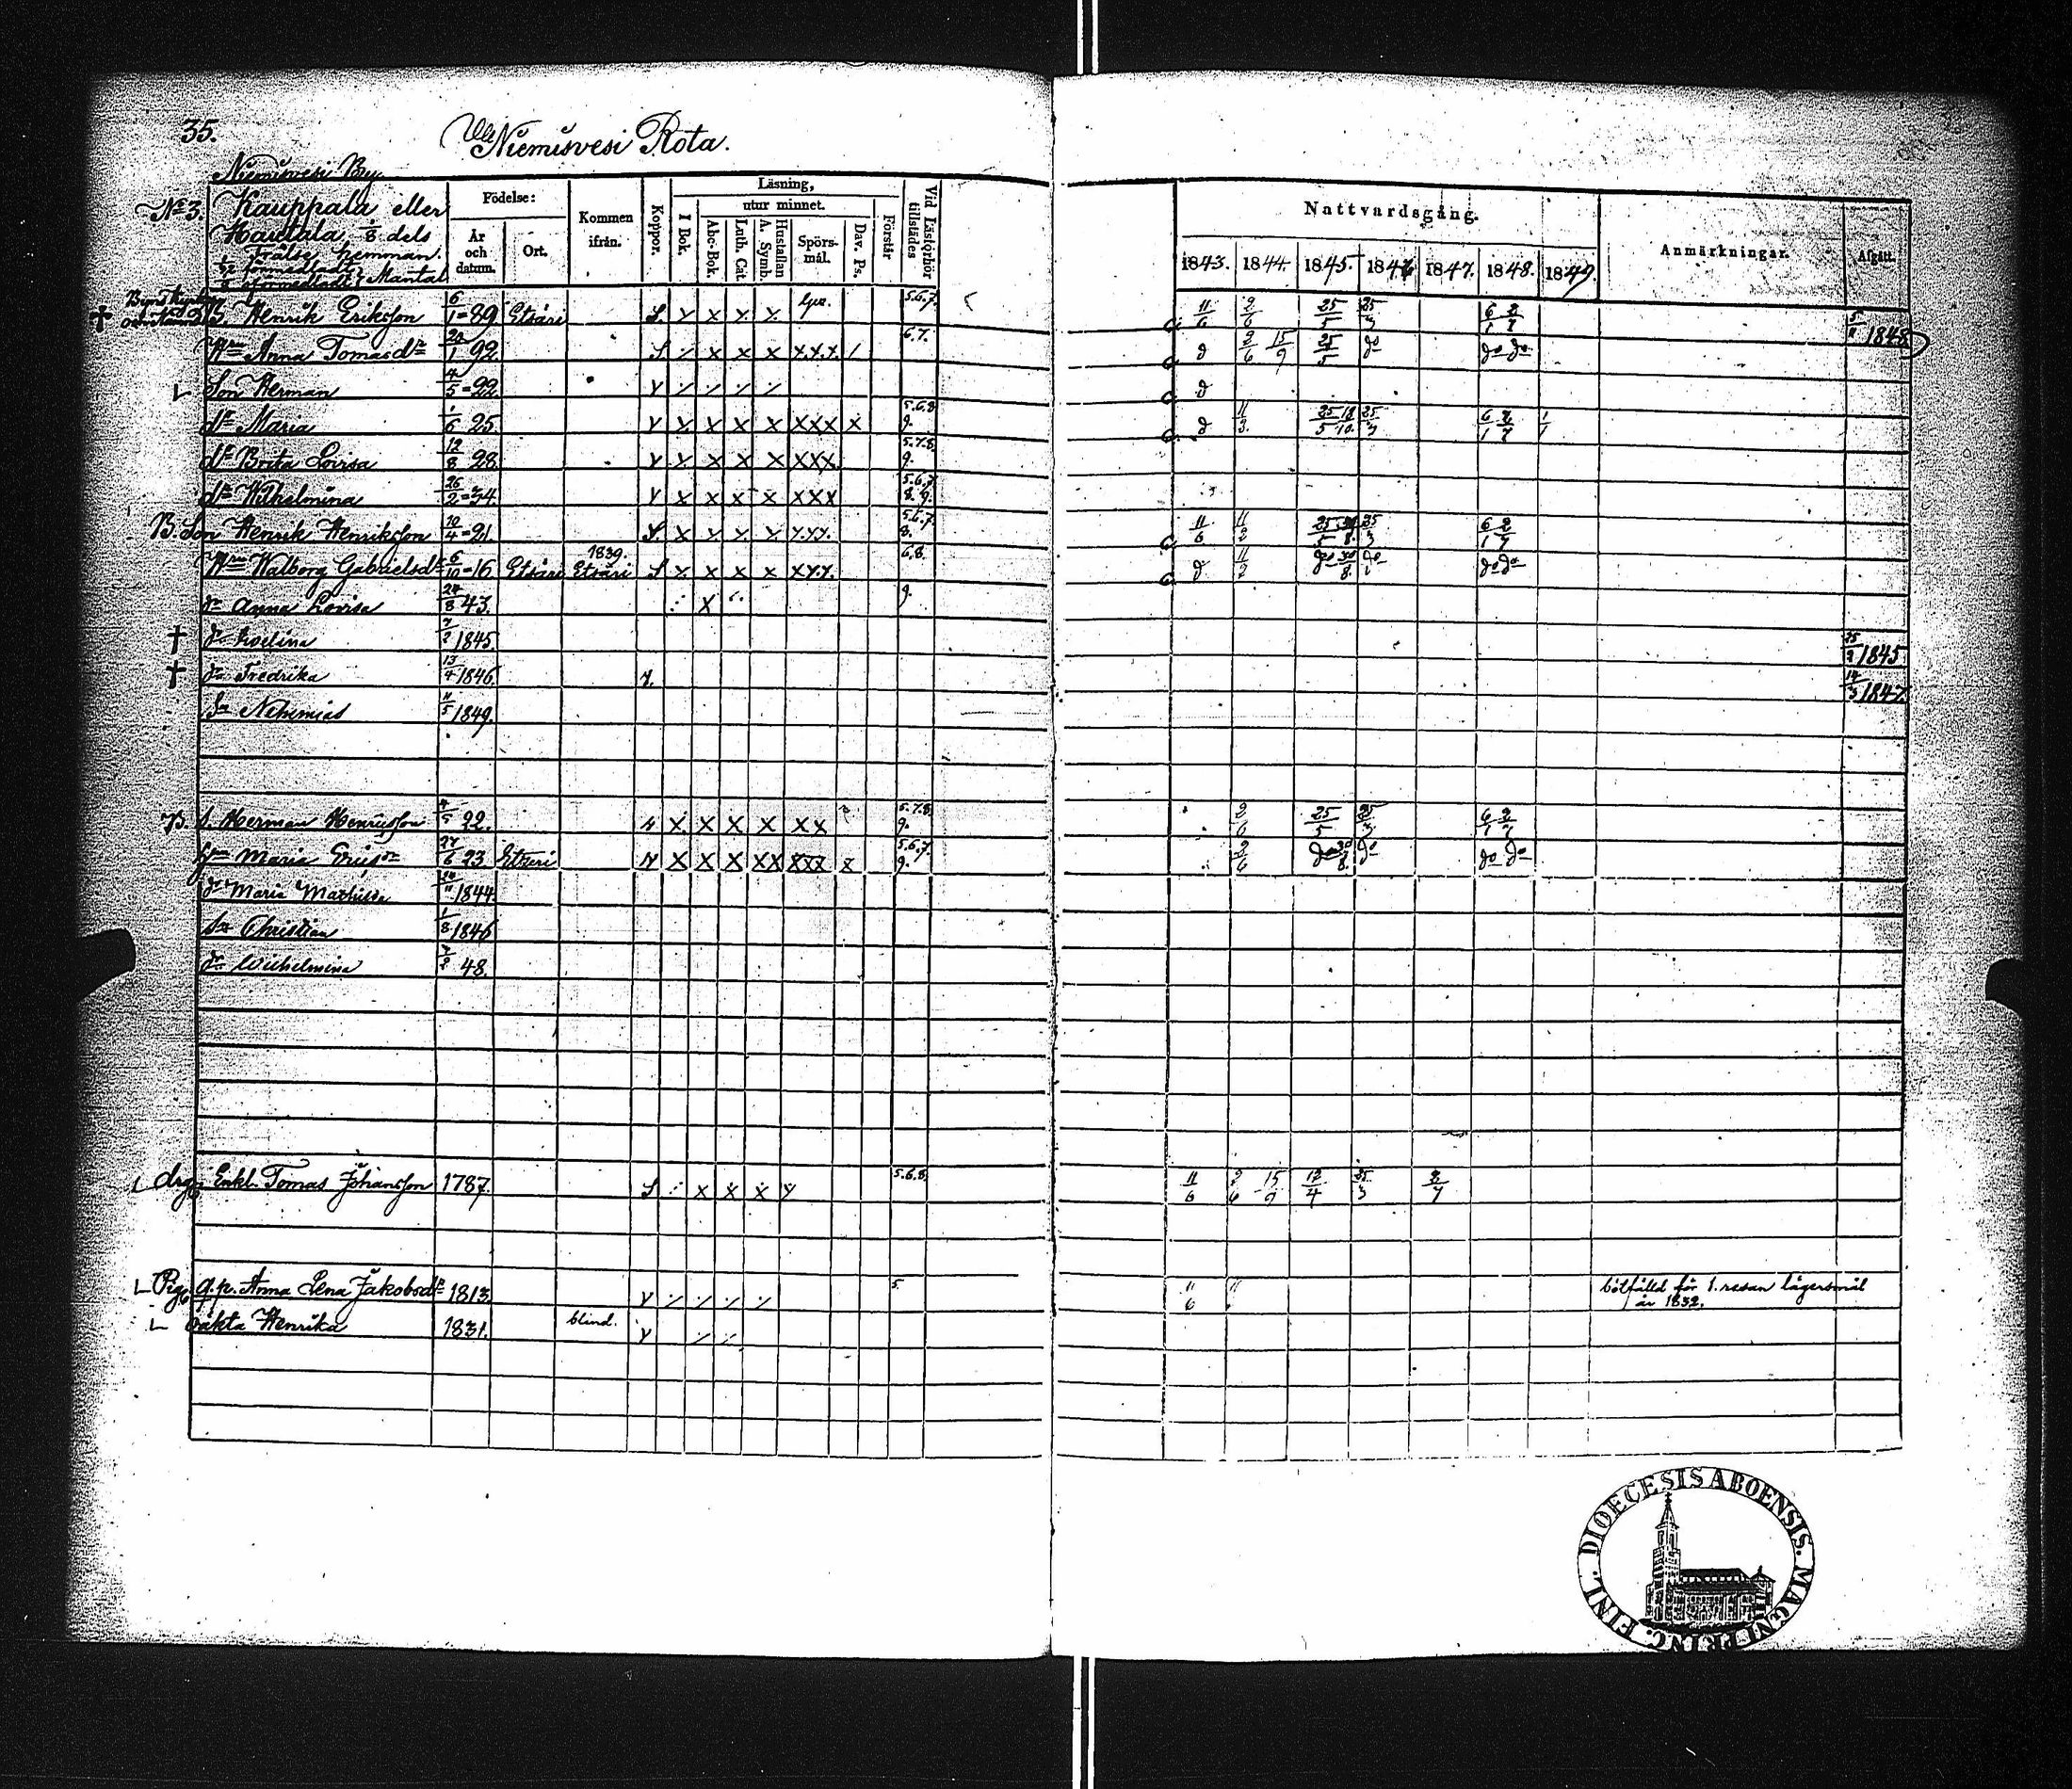 35.
Niemisvesi Rota.
Niemisvesi By.
No 3. Kauppala eller
Hautala, 1/8 dels
Frälse hemman.
Mantal
Födelse:
År och datum.
Ort.
Kommen ifrån.
Koppor.
Läsning,
I Bok.
utur minnet.
Abc-Bok.
Luth. Cat
A. Symb.
Hustaflan
Spörsmål.
Dav. Ps.
Förstår
Vid Läsförhör tillstädes
Nattvardsgång.
1843. 1844. 1845. 1846. 1847. 1848. 1849.
Anmärkningar.
Afgått.
† Henrik Eriksson 6/1 = 89 Etsäri 5.6.7. 11/6 2/6 25/5 25/3 6/1 2/7 1848
Anna Tomasdr 20/1 92 6.7. d 2/6 15/9 25/5 do do do
Son Herman 4/5 = 22 d
dr Maria 1/6 25 5.6.8 9. d 11/2 25/5 18/10 25/3 6/1 2/7 1/1
dr Brita Lovisa 12/8 28 5.7.8. 9.
dr Wilhelmina 26/2 = 34 5.6.7 8.9.
B. Son Henrik Henriksson 10/4 = 21 5.6.7. 8. 11/6 11/2 25/5 25/3 6/1 2/7
Walborg Gabrielsdr 6/10 = 16 Etsäri 1839. Etsäri 6.8. d 11/2 do do do do
dr Anna Lovisa 24/8 43. 9.
† dr Evelina 7/2 1845. 25/2 1845
† dr Fredrika 13/4 1846. 14/3 1847.
Sn Nehemias 11/5 1849.
B. s. Herman Henriksson 4/5 22. 5.7.8. 9. 2/6 25/5 25/3 6/1 2/7
Maria Ericsdr 27/6 23 Etseri 5.6.7. 9. 2/6 do do do do
dr Maria Mathilda 1844.
sn Christian 1/8 1846
dr Wilhelmina 7/2 48.
Drg. Enkl. Tomas Johansson 1787. 5.6.8. 11/6 2/6 15/9 12/4 25/3 2/7
Pig. q.p. Anna Lena Jakobsdr 1813. 5. 11/6 11 bötfälld för 1. resan lägersmål
år 1832.
oäkta Henrika 1831. blind.
DIOECESIS ABOENSIS. MAGNI PRINC. FINL.